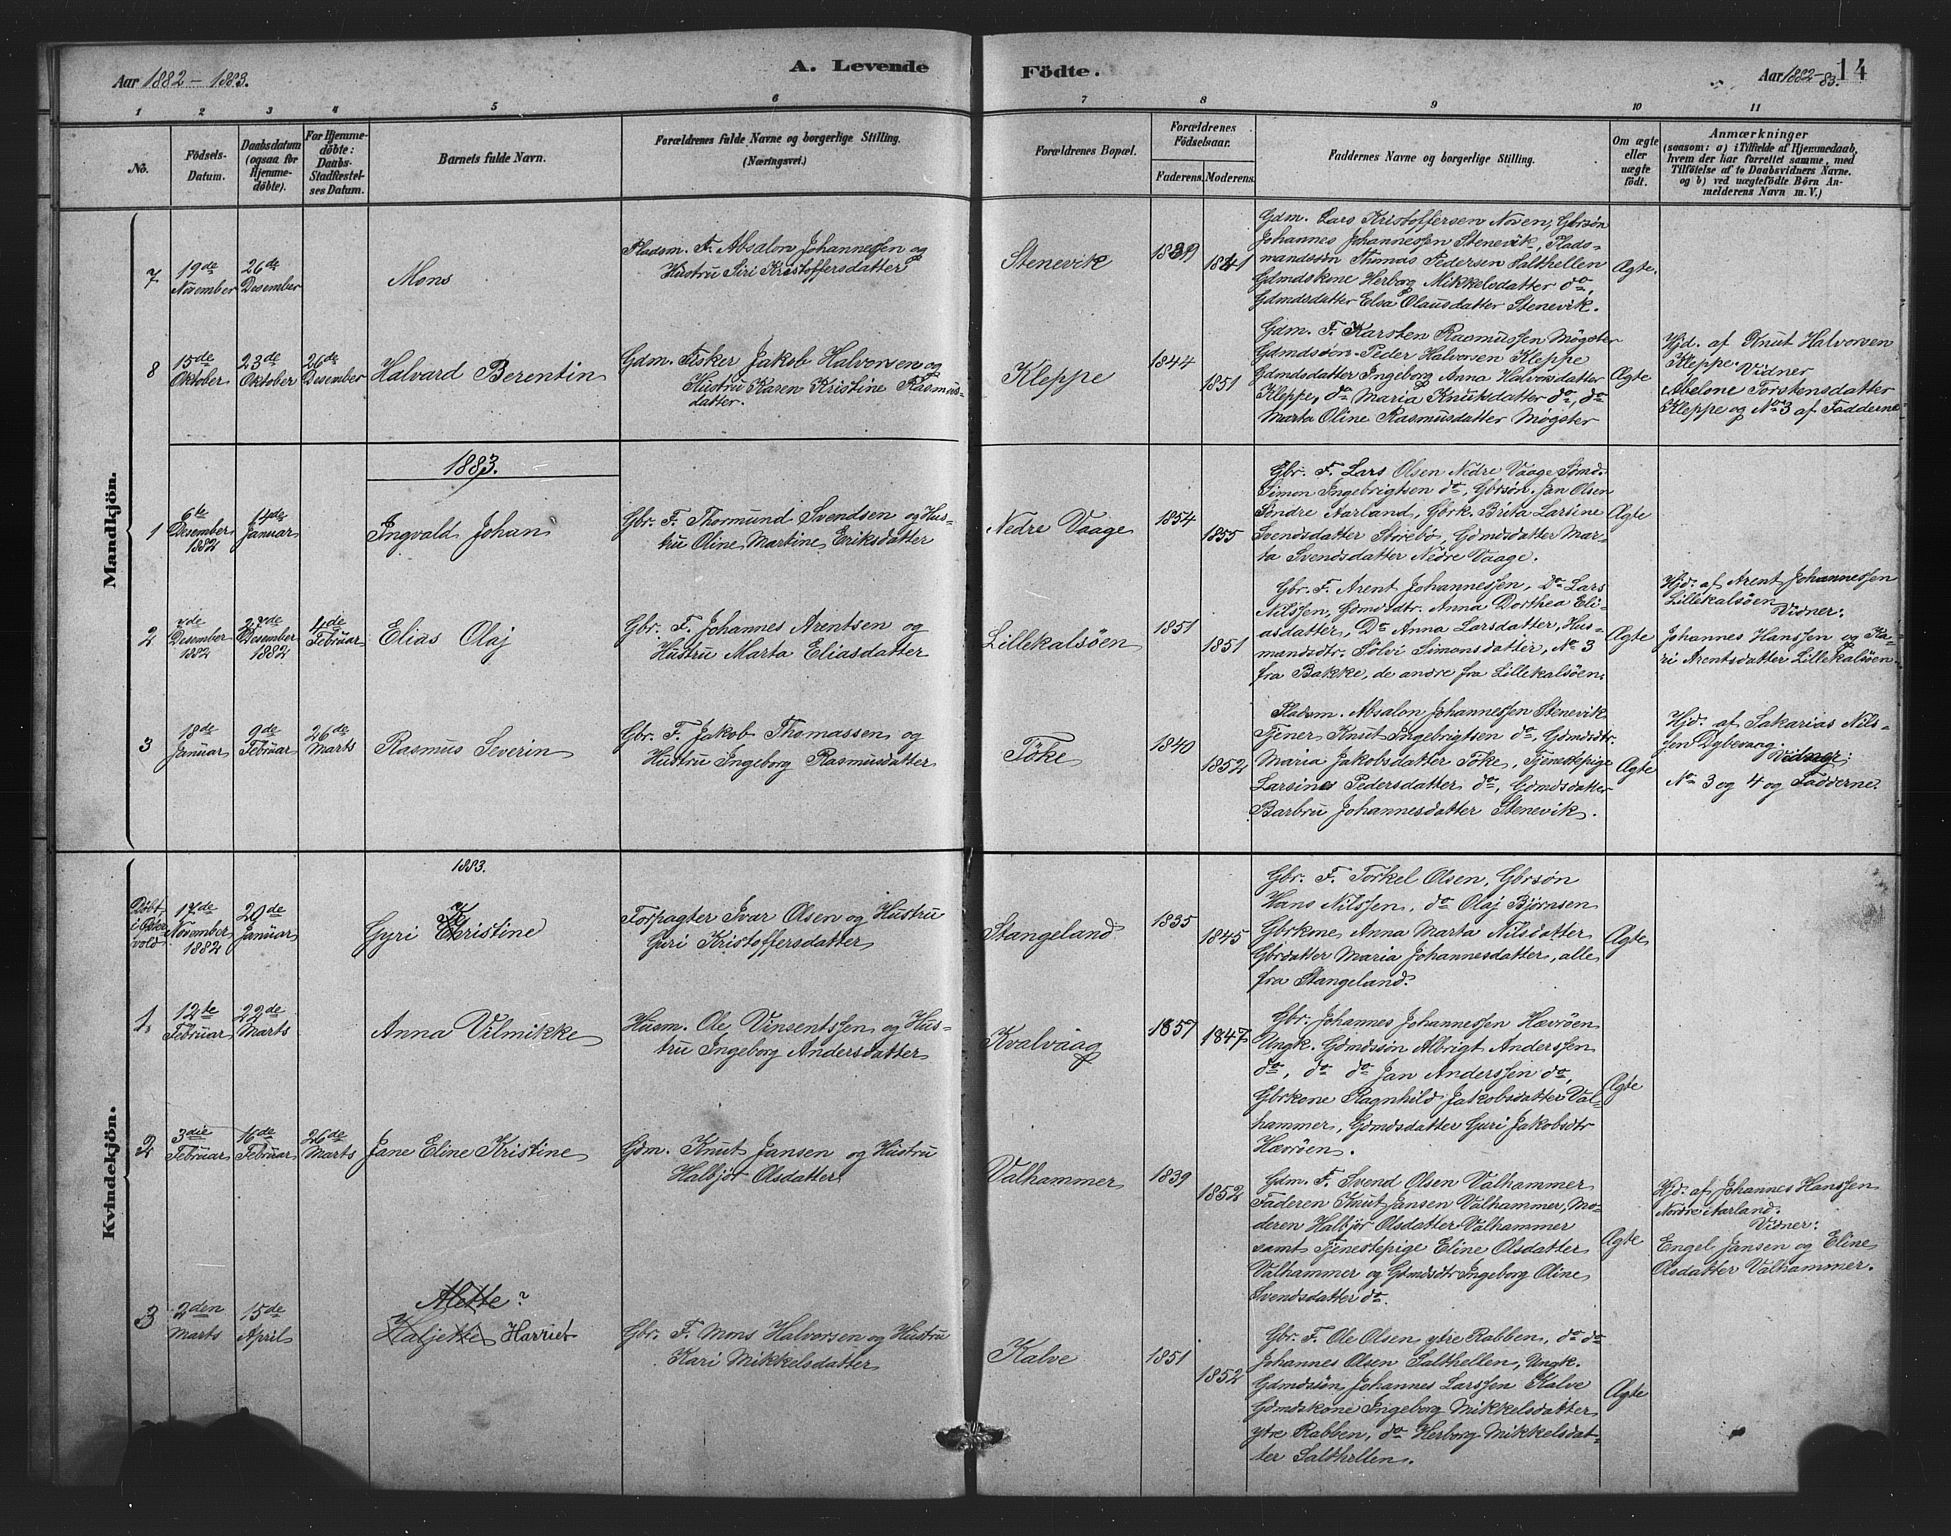 Aar 1882-1883.
A. Levende Födte.
Aar 1882-83.
14
1 2 3 4 5 6 7 8 9 10 11
No.
Födsels-Datum.
Daabsdatum (ogsaa for Hjemmedöbte).
For Hjemmedöbte: Daabs-Stadfæstelses Datum.
Barnets fulde Navn.
Forældrenes fulde Navne og borgerlige Stilling.
(Næringsvei.)
Forældrenes Bopæl.
Forældrenes Födselsaar.
Faderens. Moderens.
Faddernes Navne og borgerlige Stilling.
Om ægte eller uægte födt.
Anmærkninger
(saasom: a) i Tilfælde af Hjemmedaab,
hvem der har forrettet samme, med
Tilföielse af to Daabsvidners Navne.
og b) ved uægtefödte Börn An-
melderens Navn m. V.)
Mandkjön.
7
19de November
26de Desember
Mons
Pladsm. F. Absalon Johannessen og
Hustru Siri Kristoffersdatter
Stenevik
1839
1841
Gdm. Lars Kristoffersen Noven, Gbrsøn
Johannes Johannessen Stenevik, Plads-
mandssøn Thomas Pedersen Salthellen
Gdmdskone Herborg Mikkelsdatter do,
Gdmdsdatter Elsa Olausdatter Stenevik.
Ægte.
8
15de Oktober
23de Oktober
26de Desember
Halvard Berentin
Gdm. Fisker Jakob Halvorsen og
Hustru Karen Kristine Rasmus-
datter.
Kleppe
1844
1851
Gdm. F. Karsten Rasmussen Møgster
Gdmdsøn Peder Halvorsen Kleppe
Gdmdsdatter Ingeborg Anna Halvorsdatter
Kleppe, do Maria Knutsdatter do, do
Marta Oline Rasmusdatter Møgster
Ægte
Hjd. af Knut Halvorsen
Kleppe. Vidner
Abelone Torstensdatter
Kleppe og No 3 af Fadderne
1883.
1
6te Desember 1882
14de Januar
Ingvald Johan
Gbr. F. Thormund Svendsen og Hus-
tru Oline Martine Eriksdatter
Nedre Vaage
1854
1855
Gbr. F. Lars Olsen Nedre Vaage Sømd.
Simon Ingebrigtsen do, Gbrsøn. Jan Olsen
Søndre Aarland, Gbrk. Brita Larsine
Svendsdatter Storebø, Gdmdsdatter Mar-
ta Svendsdatter Nedre Vaage.
Ægte
2
Desember 1882
27de Desember 1882
4de Februar
Elias Olaj
Gbr. F. Johannes Arentsen og
Hustru Marta Eliasdatter
Lillekalsöen
1851
1851
Gbr. F. Arent Johannessen, Do Lars
Nilssen, Gdmdsdtr. Anna Dorthea Eli-
asdatter, Do Anna Larsdatter, Hus-
mandsdtr. Sølvi Simonsdatter, No 3
fra Bakke, de andre fra Lillekalsöen.
Ægte
Hjd. af Arent Johannessen
Lillekalsöen
Vidner:
Johannes Hanssen og Ka-
ri Arentsdatter Lillekalsöen.
3
18de Januar
9de Februar
26de Marts
Rasmus Severin
Gbr. F. Jakob Thomassen og
Hustru Ingeborg Rasmusdatter
Töke
1840
1852
Pladsm. Absalon Johannessen Stenevik
Tjener Knut Ingebrigtsen do, Gdmdsdtr.
Maria Jakobsdatter Töke, Tjenestepige
Larsine Pedersdatter do, Gdmdsdatter
Barbru Johannesdatter Stenevik.
Ægte
Hjd. af Sakarias Nils-
sen Dybevaag.
Vidner:
No 3 og 4 og Fadderne.
Kvindekjön.
1883.
Döbt i Öster vold
17de November 1882
20de Januar
Gyri Kristine
Forpagter Ivar Olsen og Hustru
Guri Kristoffersdatter
Stangeland
1835
1845
Gbr. F. Torkel Olsen, Gbrsön
Hans Nilssen, do Olaj Bjørnsen
Gbrkone Anna Marta Nilsdatter
Gbrdatter Maria Johannesdatter, alle
fra Stangeland.
Ægte
1.
12te Februar
22de Marts
Anna Vilmikke
Husm. Ole Vinsentssen og Hus-
tru Ingeborg Andersdatter
Kvalvaag
1857
1847
Gbr. Johannes Johannessen Hævröen
Ungk. Gdmdssön Albrigt Anderssen
do, do do Jan Anderssen do,
Gbrkone Ragnhild Jakobsdatter Val-
hammer, Gdmdsdatter Guri Jakobsdtr
Hævröen.
Ægte
2
3die Februar
16de Februar
26de Marts
Jane Eline Kristine
Gdm. Knut Jansen og Hustru
Halbjör Olsdatter
Valhammer
1839
1852
Gdm. F. Svend Olsen Valhammer
Faderen Knut Jansen Valhammer, Mo-
deren Halbjör Olsdatter Valhammer
samt Tjenestepige Eline Olsdatter
Valhammer og Gdmdsdtr Ingeborg Oline
Svendsdatter do.
Ægte
Hjd: af Johannes Hanssen
Nordre Aarland.
Vidner:
Engel Jansen og Eline
Olsdatter Valhammer.
3
2den Marts
15de April
Alette?
Kaljette Harriet
Gbr. F. Mons Halvorsen og Hustru
Kari Mikkelsdatter
Kalve
1851
1852
Gbr. F. Ole Olsen ytre Rabben, do do
Johannes Olsen Salthellen, Ungk.
Gdmdssön Johannes Larssen Kalve
Gdmdskone Ingeborg Mikkelsdatter
ytre Rabben, do Herborg Mikkelsdat-
ter Salthellen.
Ægte